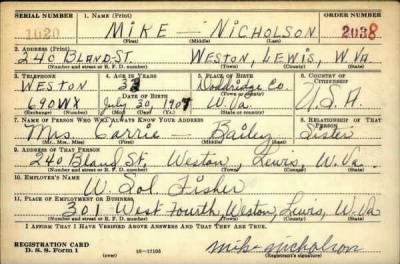 SERIAL NUMBER 1. NAME (Print) ORDER NUMBER
1620 MIKE — NICHOLSON 2038
(First) (Middle) (Last)
2. ADDRESS (Print)
240 BLAND ST WESTON, LEWIS, W. VA.
(Number and street or R. F. D. number) (Town) (County) (State)
3. TELEPHONE 4. AGE IN YEARS 5. PLACE OF BIRTH 6. COUNTRY OF CITIZENSHIP
WESTON 33 Doddridge Co.
DATE OF BIRTH
690WX July 30, 1907 W. Va. U.S.A.
(Exchange) (Number) (Mo.) (Day) (Yr.) (State or country)
7. NAME OF PERSON WHO WILL ALWAYS KNOW YOUR ADDRESS 8. RELATIONSHIP OF THAT PERSON
Mrs Carrie — Bailey Sister
(Mr., Mrs., Miss) (First) (Middle) (Last)
9. ADDRESS OF THAT PERSON
240 Bland St, Weston, Lewis, W. Va.
(Number and street or R. F. D. number) (Town) (County) (State)
10. EMPLOYER'S NAME
W. Sol. Fisher
11. PLACE OF EMPLOYMENT OR BUSINESS
301 West Fourth, Weston, Lewis, W. Va
(Number and street or R. F. D. number) (Town) (County) (State)
I AFFIRM THAT I HAVE VERIFIED ABOVE ANSWERS AND THAT THEY ARE TRUE.
REGISTRATION CARD
D. S. S. Form 1 (over) 16—17105 Mike Nicholson
(Registrant's signature)